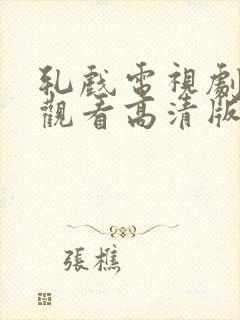 乳戲電視劇
觀看高清版
張樵